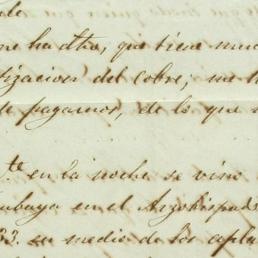 me ha dho, que tiene muc
tizacion del cobre; me h
te pagamos, de lo que
te en la noche se vino
ubaya en el Arzobispad
33. en medio de los apla